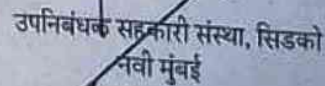 उपनिबंधक सहकारी संस्था, सिडको
नवी मुंबई